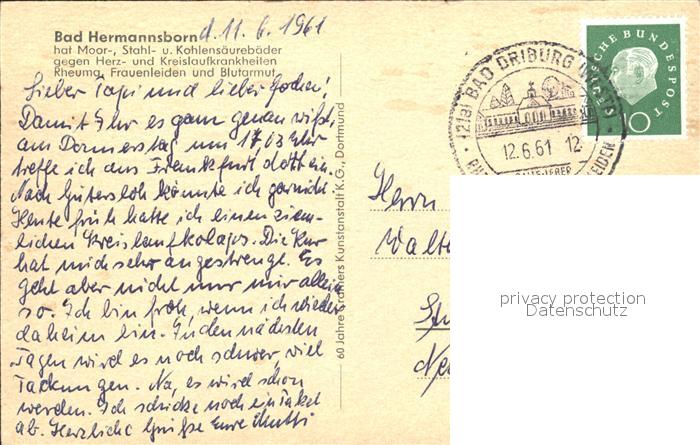 Bad Hermannsborn d. 11. 6. 1961
hat Moor-, Stahl- u. Kohlensäurebäder
gegen Herz- und Kreislaufkrankheiten
Rheuma, Frauenleiden und Blutarmut
Lieber Papi und lieber Jochen!
Damit Ihr es ganz genau wißt,
am Donnerstag um 17,03 Uhr
treffe ich aus Frankfurt dort ein.
Nach Gütersloh könnte ich garnicht
Heute früh hatte ich einen ziem-
lichen Kreislaufkolaps. Die Kur
hat mich sehr angestrengt. Es
geht aber nicht nur mir allein
so. Ich bin froh, wenn ich wieder
daheim bin. In den nächsten
Tagen wird es noch schwer, viel
Packungen. Na, es wird schon
werden. Ich schicke noch ein Paket
ab. Herzliche Grüße Eure Mutti
60 Jahre Krämers Kunstanstalt K.G., Dortmund
(21a) BAD DRIBURG
12.6.61 12
DEUTSCHE BUNDESPOST
10
Herrn
Walte
privacy protection
Datenschutz